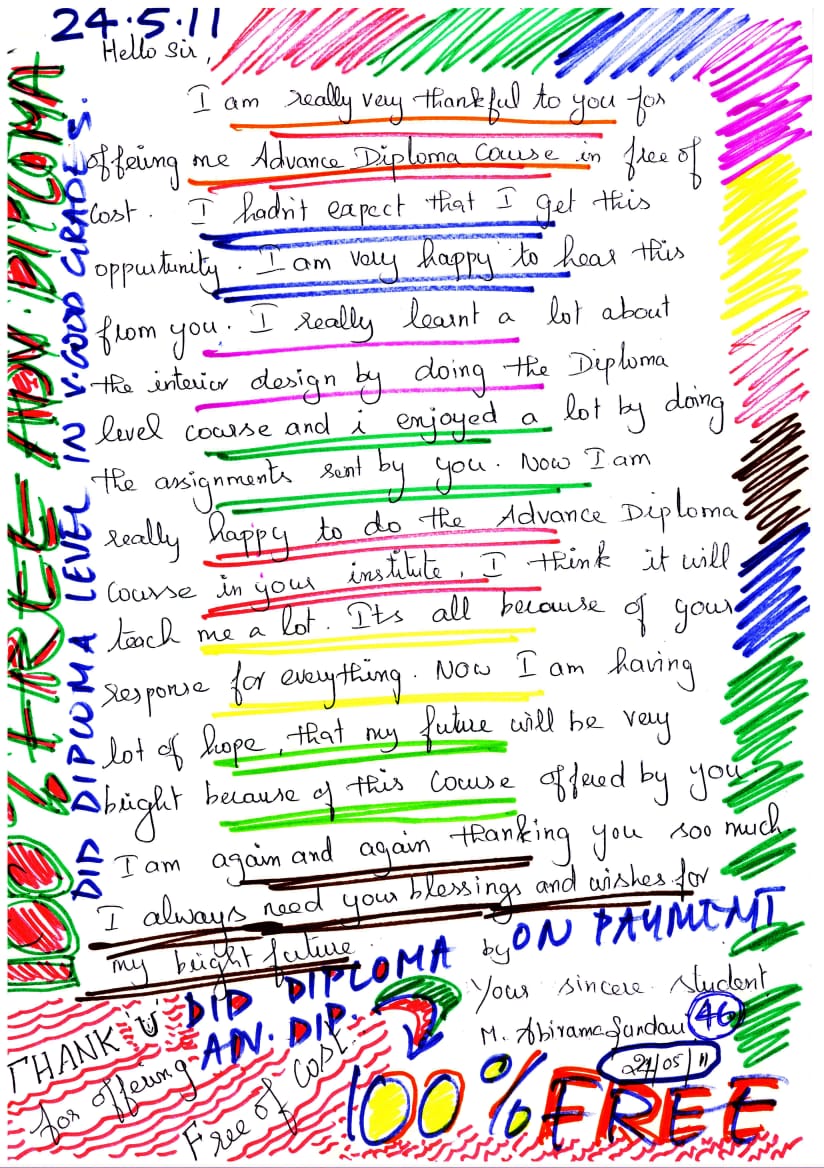 24.5.11
Hello Sir,
I am really very thankful to you for
offering me Advance Diploma Course in free of
cost. I hadn't expect that I get this
oppurtunity. I am very happy to hear this
from you. I really learnt a lot about
the interior design by doing the Diploma
level course and i enjoyed a lot by doing
the assignments sent by you. Now I am
really happy to do the Advance Diploma
course in your institute, I think it will
teach me a lot. Its all because of your
response for everything. Now I am having
lot of hope, that my future will be very
bright because of this course offered by you
I am again and again thanking you soo much
I always need your blessings and wishes for
my bright future
by
Your sincere student
M. Abirama Sundari
46
24/05/11
100% FREE ADV. DIPLOMA
DID DIPLOMA LEVEL IN V.GOOD GRADES.
DID DIPLOMA ON PAYMENT
ADV. DIP.
100% FREE
THANK U
for offering
Free of cost.